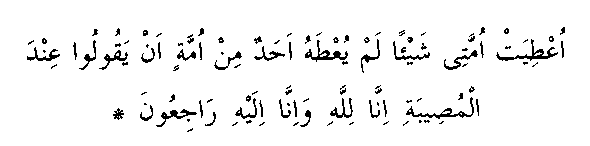 اُعْطِيَتْ اُمَّتِى شَيْئًا لَمْ يُعْطَهُ اَحَدٌ مِنْ اُمَّةٍ اَنْ يَقُولُوا عِنْدَ
الْمُصِيبَةِ اِنَّا لِلَّهِ وَاِنَّا اِلَيْهِ رَاجِعُونَ *